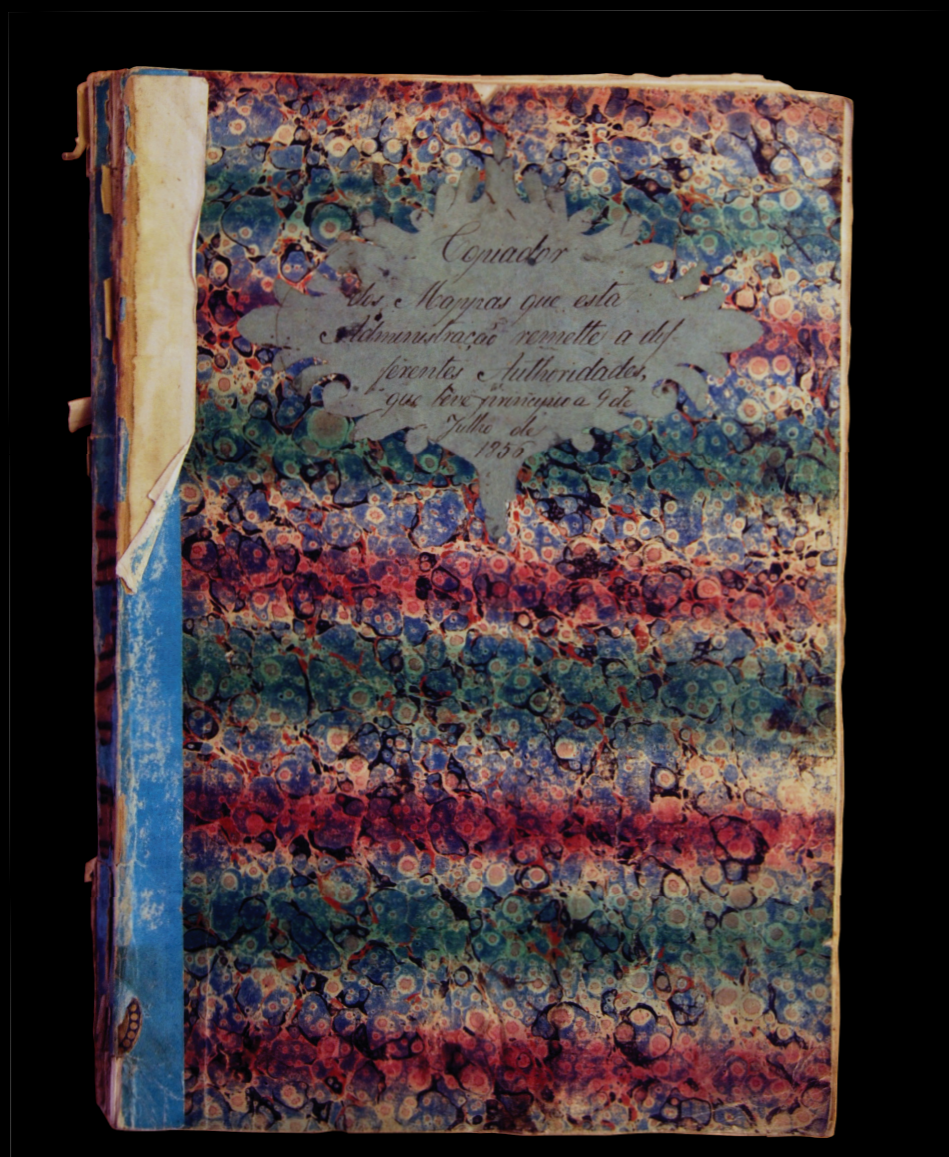 Copiador
dos Mappas que esta
Administração remette a dif
ferentes Authoridades,
que teve principio a 9 de
Julho de
1856